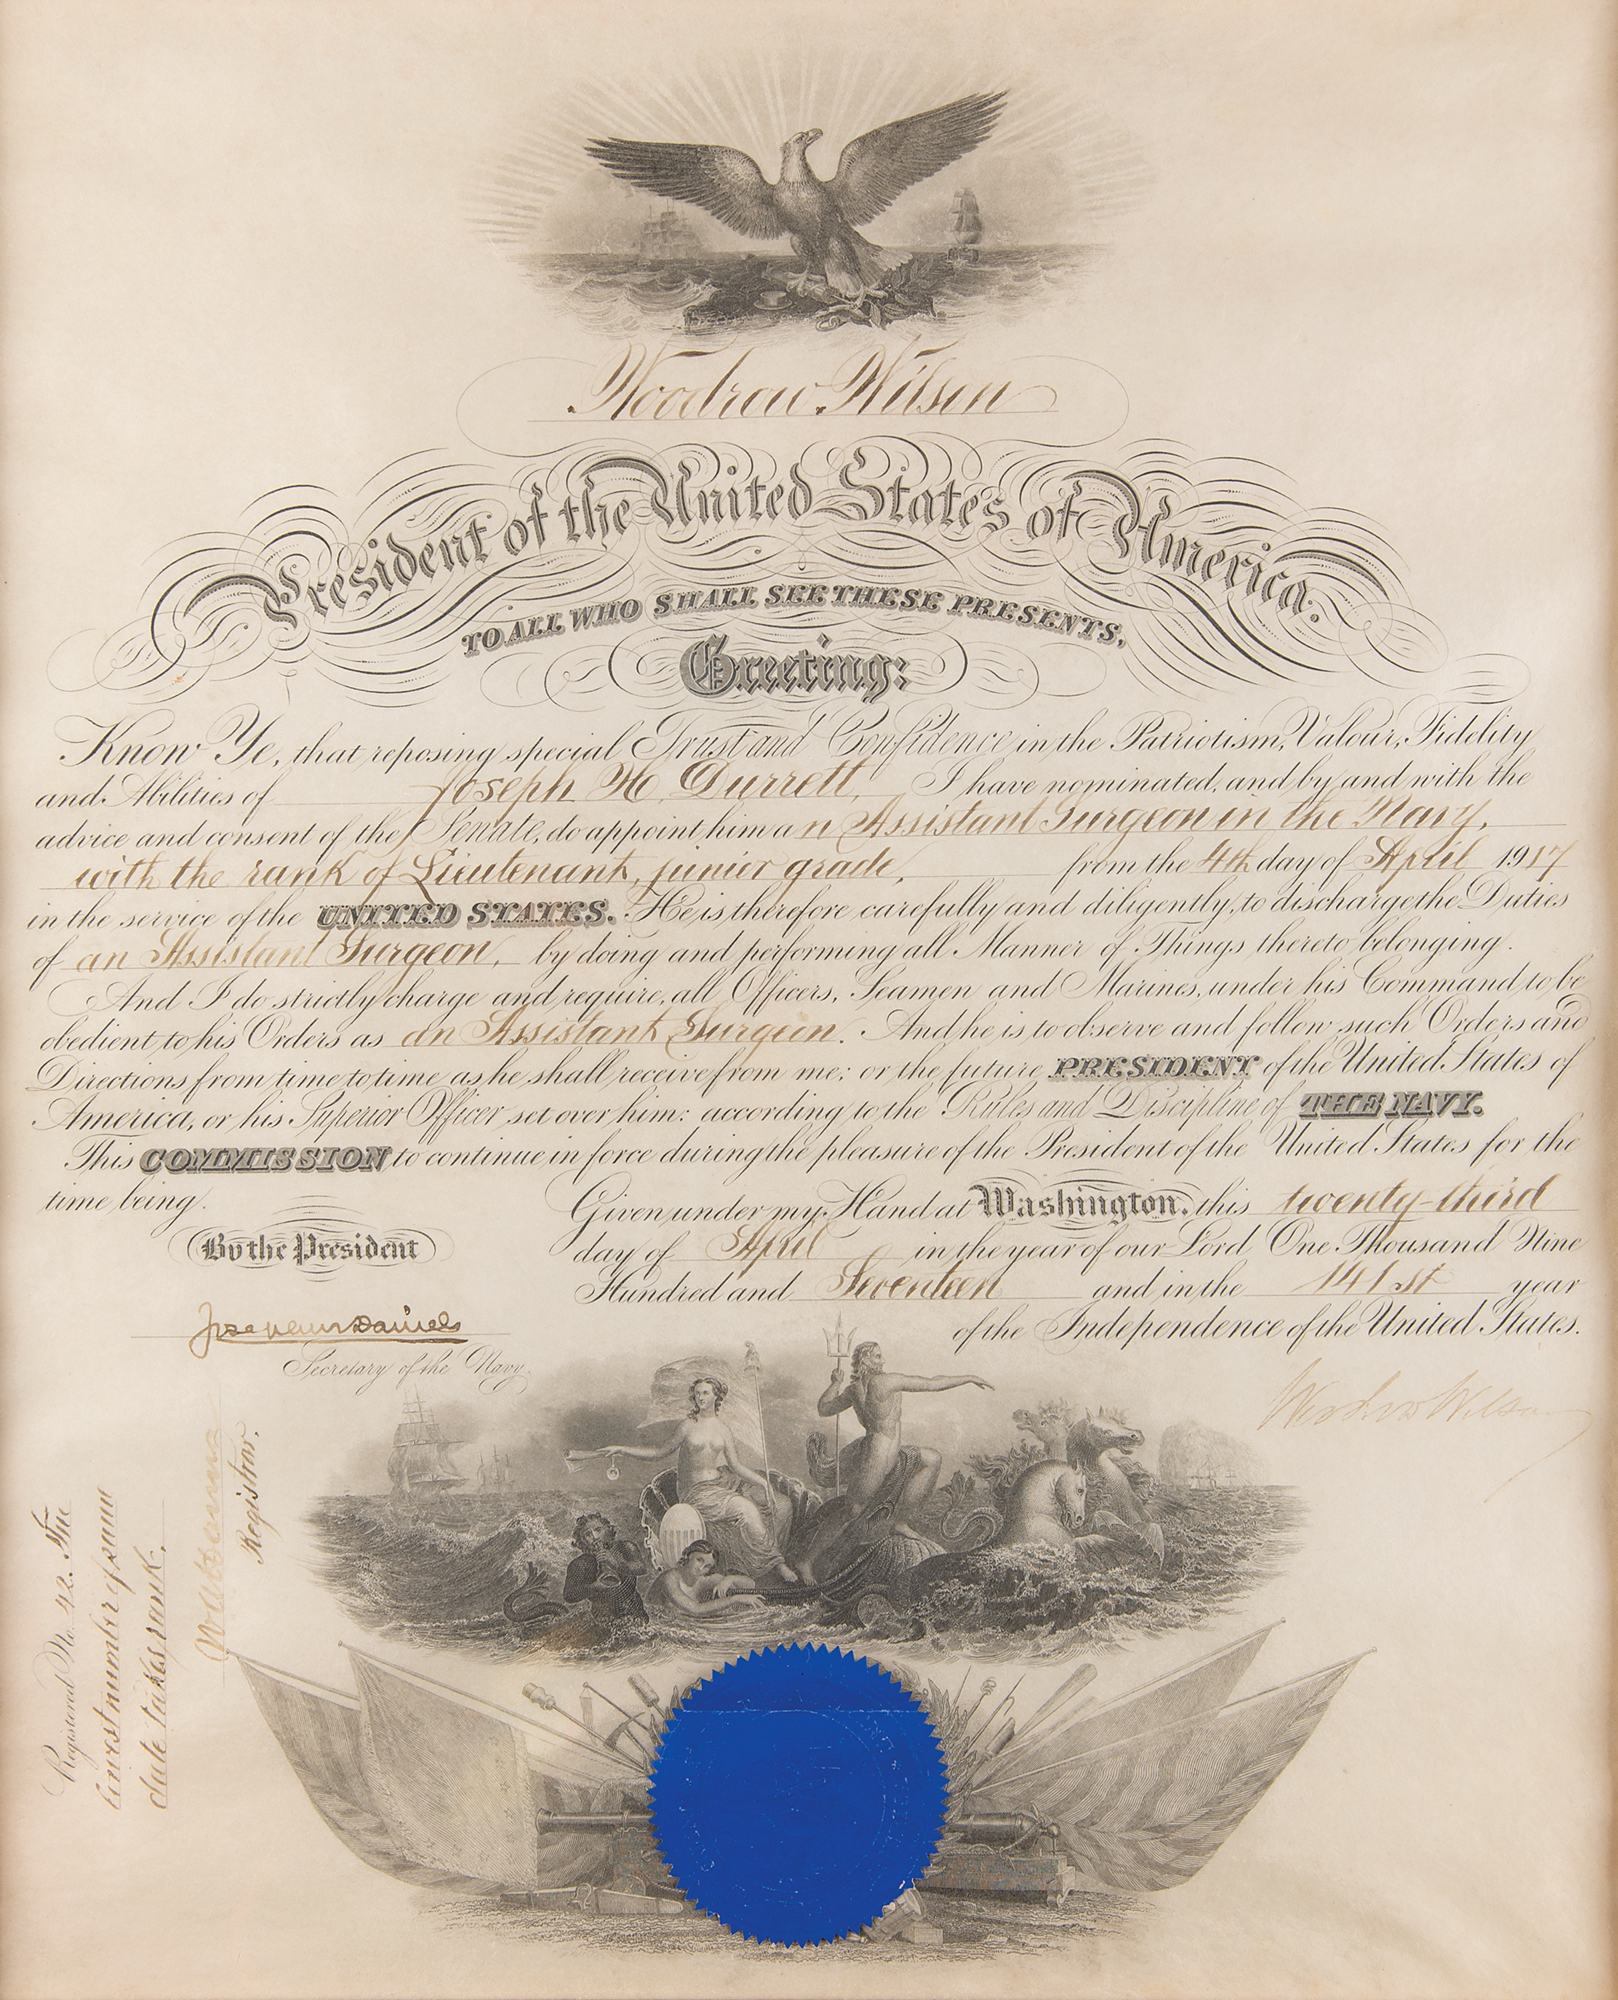 Woodrow Wilson
President of the United States of America.
TO ALL WHO SHALL SEE THESE PRESENTS,
Greeting:
Know Ye, that reposing special Trust and Confidence in the Patriotism, Valour, Fidelity
and Abilities of Joseph H. Durrett, I have nominated, and by and with the
advice and consent of the Senate, do appoint him an Assistant Surgeon in the Navy,
with the rank of Lieutenant, junior grade, from the 4th day of April 1917
in the service of the UNITED STATES. He is therefore carefully and diligently, to discharge the Duties
of an Assistant Surgeon, by doing and performing all Manner of Things thereto belonging.
And I do strictly charge and require, all Officers, Seamen and Marines, under his Command to be
obedient to his Orders as an Assistant Surgeon. And he is to observe and follow such Orders and
Directions from time to time as he shall receive from me; or the future PRESIDENT of the United States of
America, or his Superior Officer set over him: according to the Rules and Discipline of THE NAVY.
This COMMISSION to continue in force during the pleasure of the President of the United States for the
time being.
Given under my Hand at Washington, this twenty-third
By the President
day of April in the year of our Lord One Thousand Nine
Hundred and Seventeen and in the 141st year
of the Independence of the United States.
Josephus Daniels
Secretary of the Navy.
Woodrow Wilson
Registered No. 42. The
date takes rank.
Registrar.